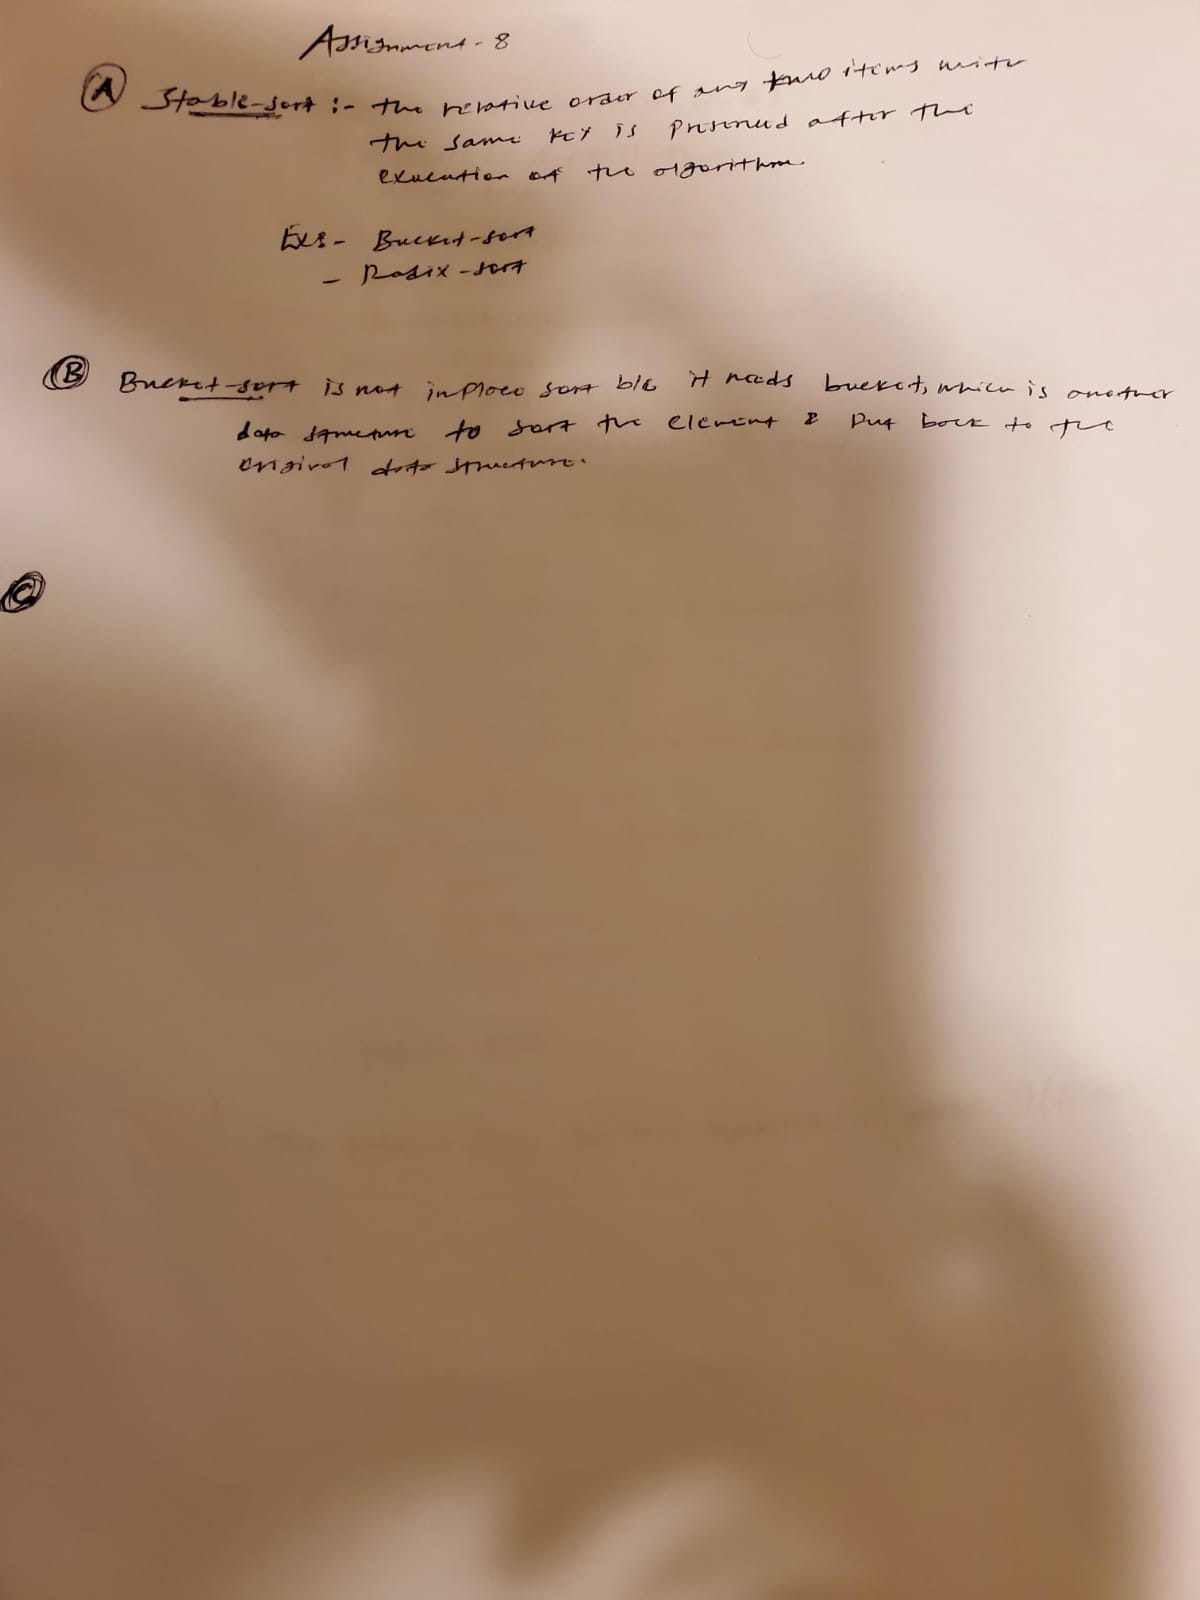 Assignment - 8
(A) Stable-sort :- the relative order of any two items with
the same key is preserved after the
execution of the algorithm.
Ex:- Bucket-sort
- Radix-sort
(B) Bucket-sort is not inplace sort b/c it needs bucket, which is another
data structure to sort the element & put back to the
original data structure.
(C)